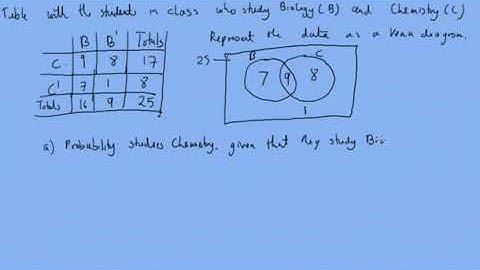 Table with the student in class who study Biology (B) and Chemistry (C)
Represent the data as a Venn diagram.
B B' Totals
C 9 8 17
C' 7 1 8
Totals 16 9 25
25
B C
7 9 8
1
a) Probability studies Chemistry, given that they study